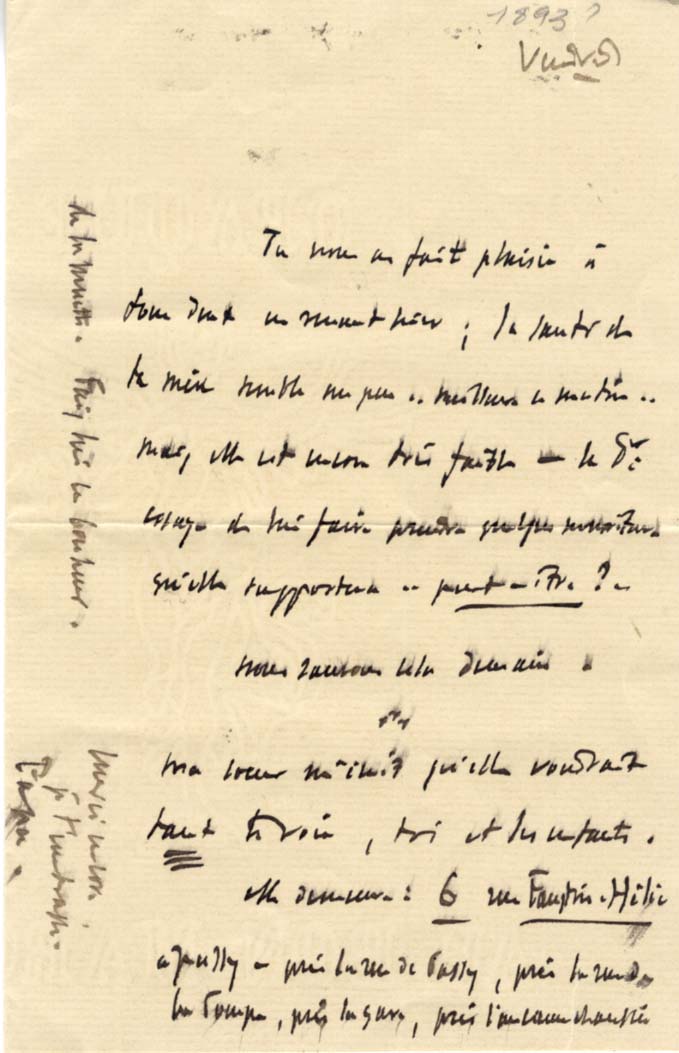 1893?
Vendredi
Tu nous as fait plaisir à
tous deux en venant hier ; la santé de
ta mère semble un peu .. meilleure ce matin ..
mais, elle est encore très faible — le Dr
essaye de lui faire prendre quelque nourriture
qu'elle supportera .. peut-être ? ..
nous saurons cela demain .
Ma soeur m'écrit qu'elle voudrait
tant te voir, toi et les enfants .
elle demeure : 6 rue Faustin-Hélie
à passy — près la rue de Passy, près la rue de
la Pompe, près la gare, près l'ancienne chaussée
de la muette . Fais lui ce bonheur .
Merci encore .
je t'embrasse .
Papa .